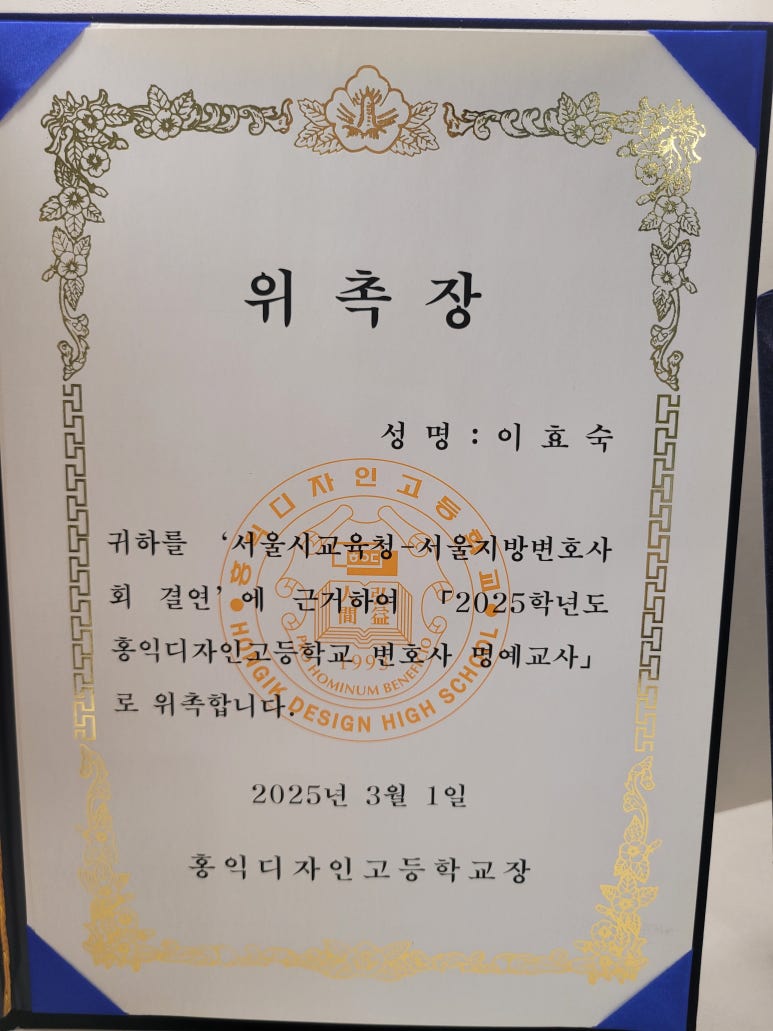 위촉장
성명 : 이효숙
귀하를 ‘서울시교육청-서울지방변호사
회 결연’에 근거하여 「2025학년도
홍익디자인고등학교 변호사 명예교사」
로 위촉합니다.
홍익디자인고등학교
弘益
人間
PRO HOMINUM BENEFICIO
HONGIK DESIGN HIGH SCHOOL
2025년 3월 1일
홍익디자인고등학교장